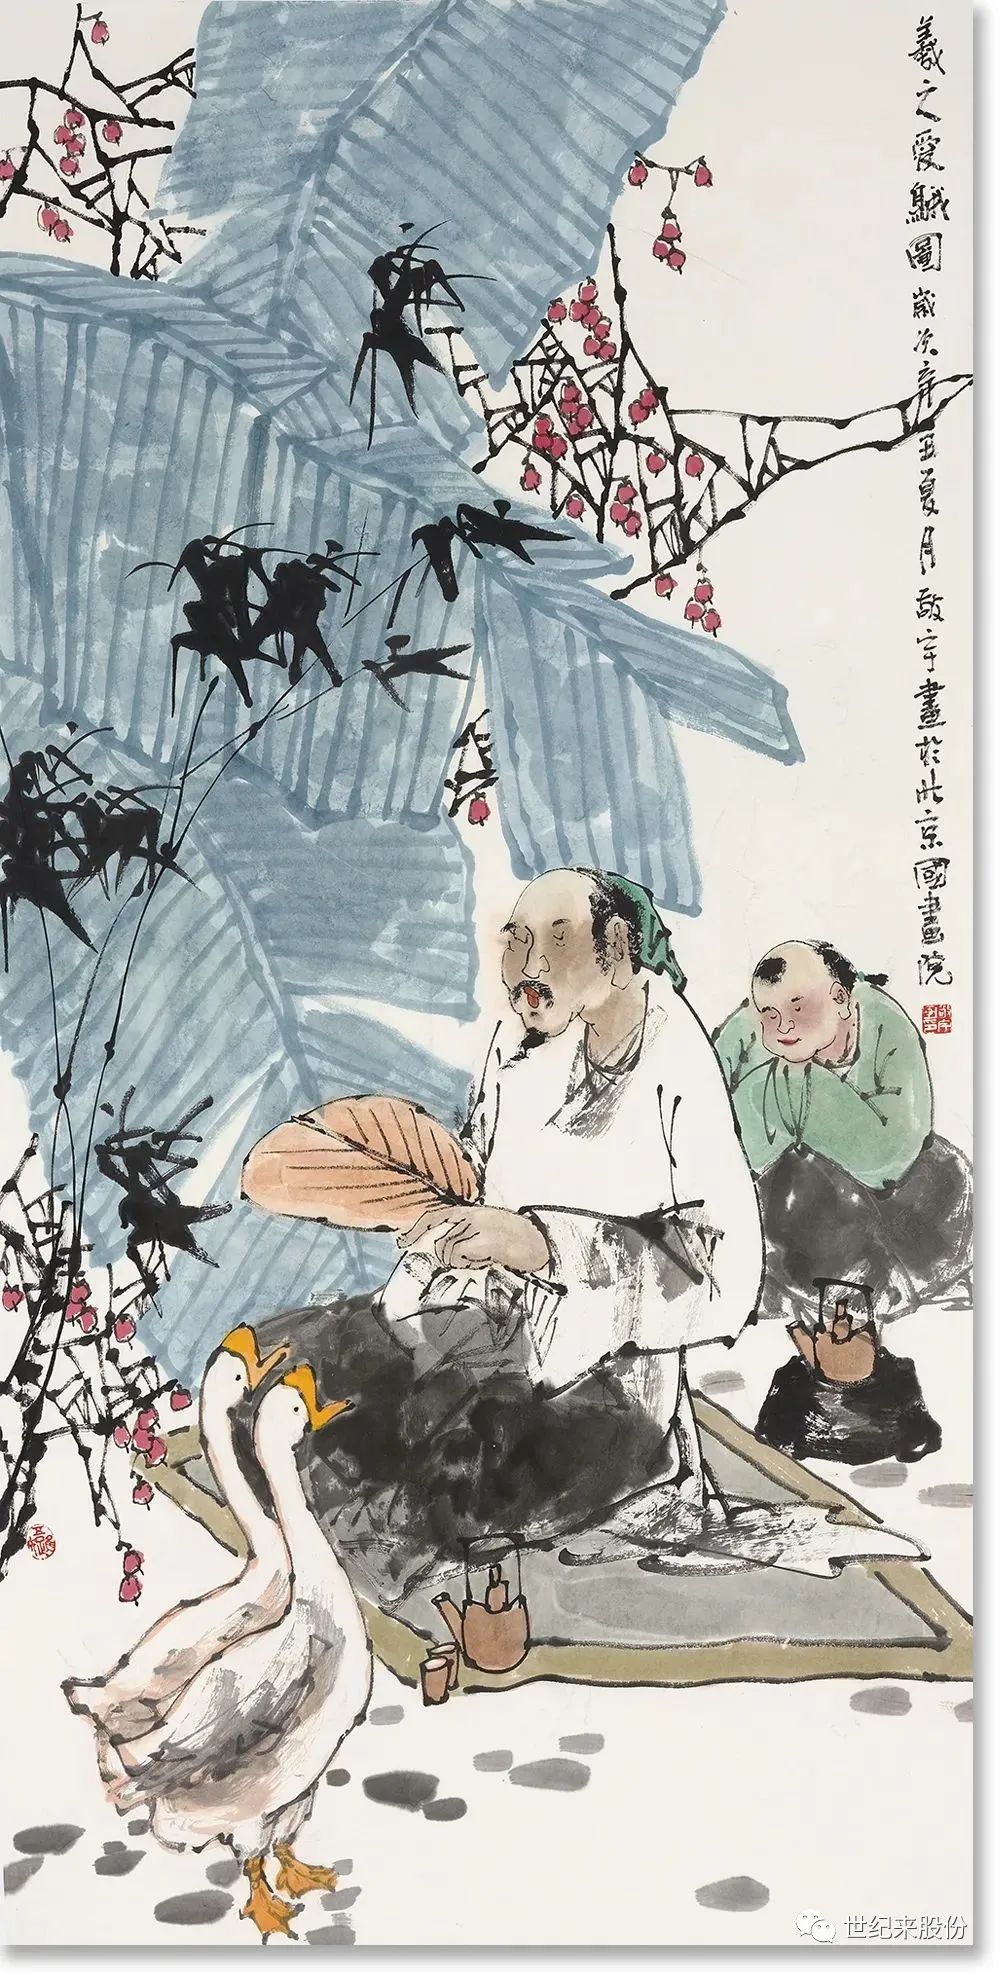 羲之愛鵝圖歲次辛丑夏月敬宇畫於北京國畫院
世纪来股份